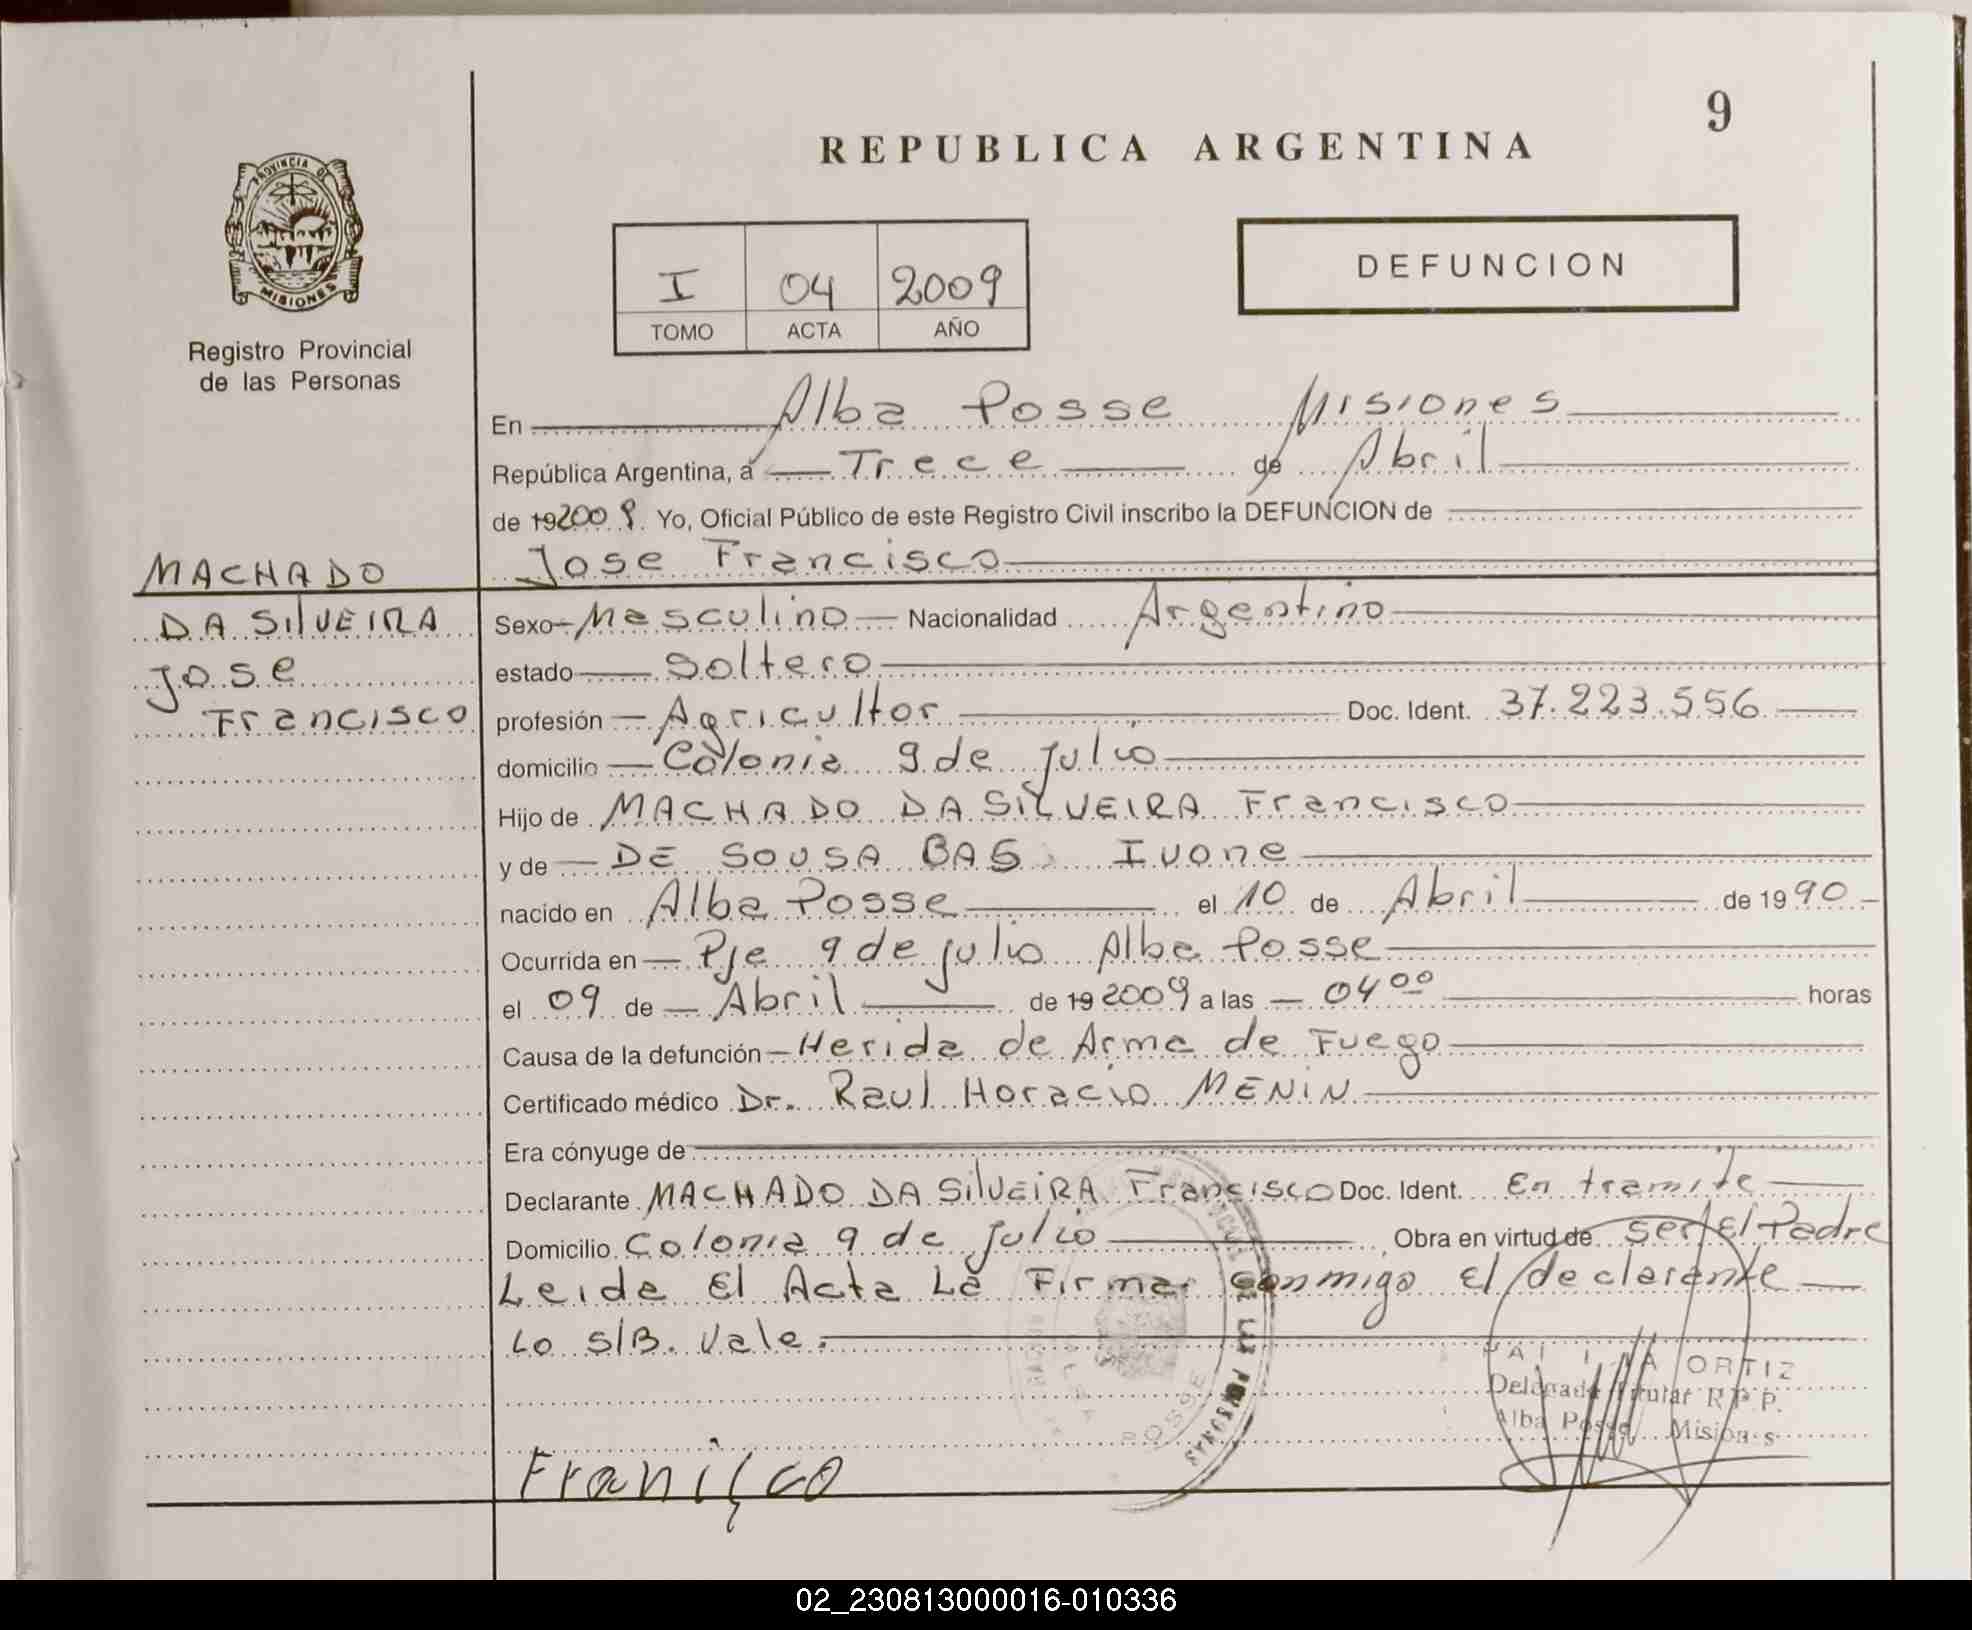 9
REPUBLICA ARGENTINA
PROVINCIA DE
MISIONES
Registro Provincial
de las Personas
I 04 2009
TOMO ACTA AÑO
DEFUNCION
En Alba Posse Misiones
República Argentina, a Trece de Abril
de 192009. Yo, Oficial Público de este Registro Civil inscribo la DEFUNCION de
MACHADO Jose Francisco
DA SilVEIRA Sexo Masculino Nacionalidad Argentino
Jose estado Soltero
Francisco profesión Agricultor Doc. Ident. 37.223.556
domicilio Colonia 9 de Julio
Hijo de MACHADO DA SILVEIRA Francisco
y de DE SOUSA BAS Ivone
nacido en Alba Posse el 10 de Abril de 1990
Ocurrida en Pje 9 de julio Alba Posse
el 09 de Abril de 192009 a las 04 00 horas
Causa de la defunción Herida de Arma de Fuego
Certificado médico Dr. Raul Horacio MENIN
Era cónyuge de
Declarante MACHADO DA SilVEiRA Francisco Doc. Ident. En tramite
Domicilio Colonia 9 de Julio Obra en virtud de ser El Padre
Leida El Acta La Firma conmigo El declarante
Lo S/B. Vale.
ORTIZ
Delegada Titular R.P.P.
Alba Posse Misiones
POSSE
Franisco
02_230813000016-010336